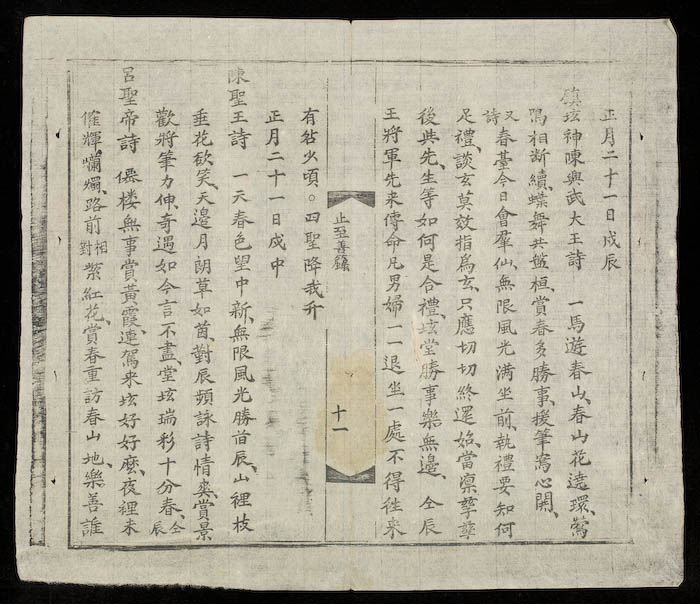 正月二十一日戌辰
鎮玹神陳興武大王詩 一馬遊春山、春山花遶環、鶯
鳴相断續、蝶舞共盤桓、賞春多勝事、援筆寫心開、
又詩 春臺今日會羣仙、無限風光满坐前、執禮要知何
足禮、談玄莫效指爲玄、只應切切終還始、當凛孳孳
後與先、生等如何是合禮、玹堂勝事樂無邊、仝辰
王將軍先来傳命凡男婦一一退坐一處不得徃来
止至善籙
十一
有站少頃。四聖降我升
正月二十一日戌中
陳聖王詩 一天春色望中新、無限風光勝昔辰、山裡枝
垂花欲笑、天邊月朗草如茵、對辰頻詠詩情爽、賞景
歡將筆力伸、奇遇如今言不盡、堂玹瑞彩十分春、仝辰
呂聖帝詩 僊楼無事賞黃霞、連駕来玹好好麽、夜裡未
催輝爛爛、路前相對紫紅花、賞春重訪春山地、樂善誰